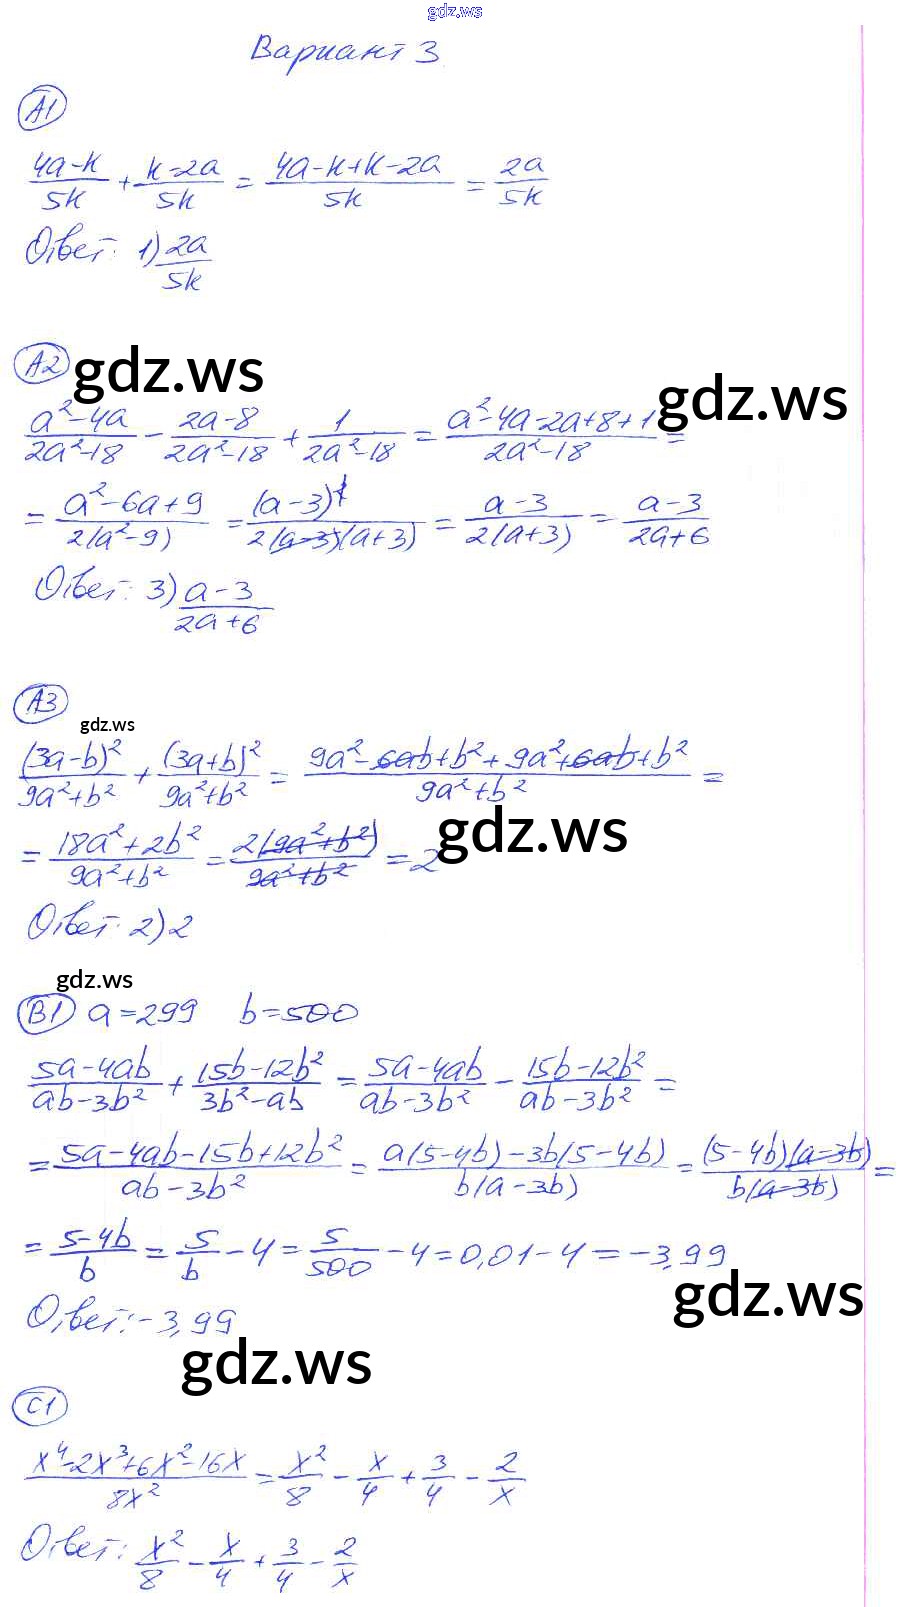 gdz.ws
Вариант 3
А1
(4a-k)/5k + (k-2a)/5k = (4a-k+k-2a)/5k = 2a/5k
Ответ: 1) 2a/5k
А2
gdz.ws
gdz.ws
(a²-4a)/(2a²-18) - (2a-8)/(2a²-18) + 1/(2a²-18) = (a²-4a-2a+8+1)/(2a²-18) =
= (a²-6a+9)/(2(a²-9)) = (a-3)²/(2(a-3)(a+3)) = (a-3)/(2(a+3)) = (a-3)/(2a+6)
Ответ: 3) (a-3)/(2a+6)
А3
gdz.ws
(3a-b)²/(9a²+b²) + (3a+b)²/(9a²+b²) = (9a²-6ab+b²+9a²+6ab+b²)/(9a²+b²) =
= (18a²+2b²)/(9a²+b²) = 2(9a²+b²)/(9a²+b²) = 2
gdz.ws
Ответ: 2) 2
gdz.ws
В1 a=299 b=500
(5a-4ab)/(ab-3b²) + (15b-12b²)/(3b²-ab) = (5a-4ab)/(ab-3b²) - (15b-12b²)/(ab-3b²) =
= (5a-4ab-15b+12b²)/(ab-3b²) = (a(5-4b)-3b(5-4b))/(b(a-3b)) = (5-4b)(a-3b)/(b(a-3b)) =
= (5-4b)/b = 5/b - 4 = 5/500 - 4 = 0,01-4 = -3,99
gdz.ws
Ответ: -3,99
gdz.ws
С1
(x⁴-2x³+6x²-16x)/8x² = x²/8 - x/4 + 3/4 - 2/x
Ответ: x²/8 - x/4 + 3/4 - 2/x